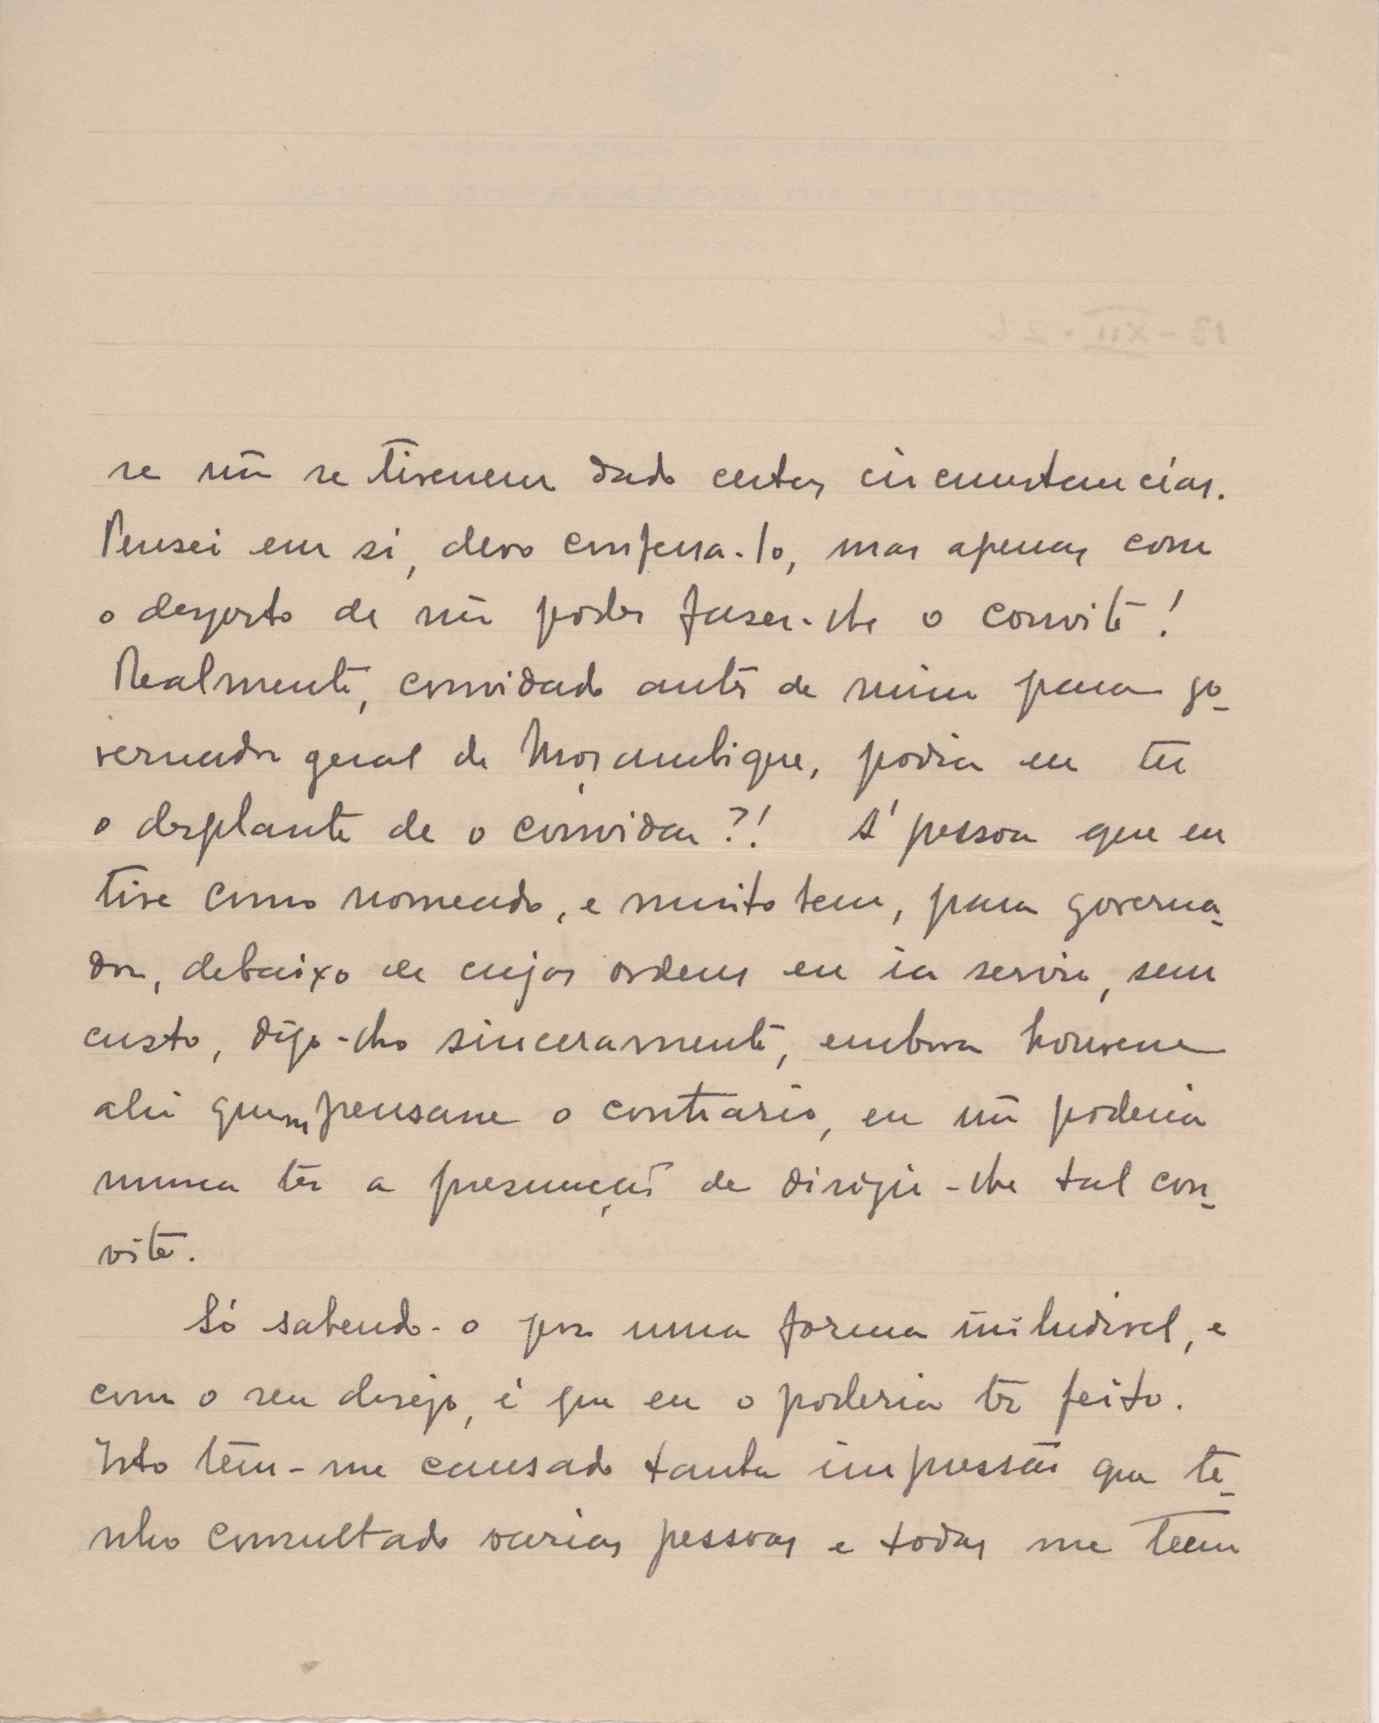 se não se tivessem dado certas circumstancias.
Pensei em si, devo confessa-lo, mas apenas com
o desgosto de não poder fazer-lhe o convite!
Realmente, convidado antes de mim para go-
vernador geral de Moçambique, podia eu ter
o desplante de o convidar?! A' pessoa que eu
tive como nomeado, e muito bem, para governa-
dor, debaixo de cujas ordens eu ia servir, sem
custo, digo-lho sinceramente, embora houvesse
ahi quem pensasse o contrario, eu não poderia
nunca ter a presumção de dirigir-lhe tal con-
vite.
Só sabendo-o por uma forma iniludivel, e
com o seu desejo, é que eu o poderia ter feito.
Isto tem-me causado tanta impressão que te-
nho consultado varias pessoas e todas me teem